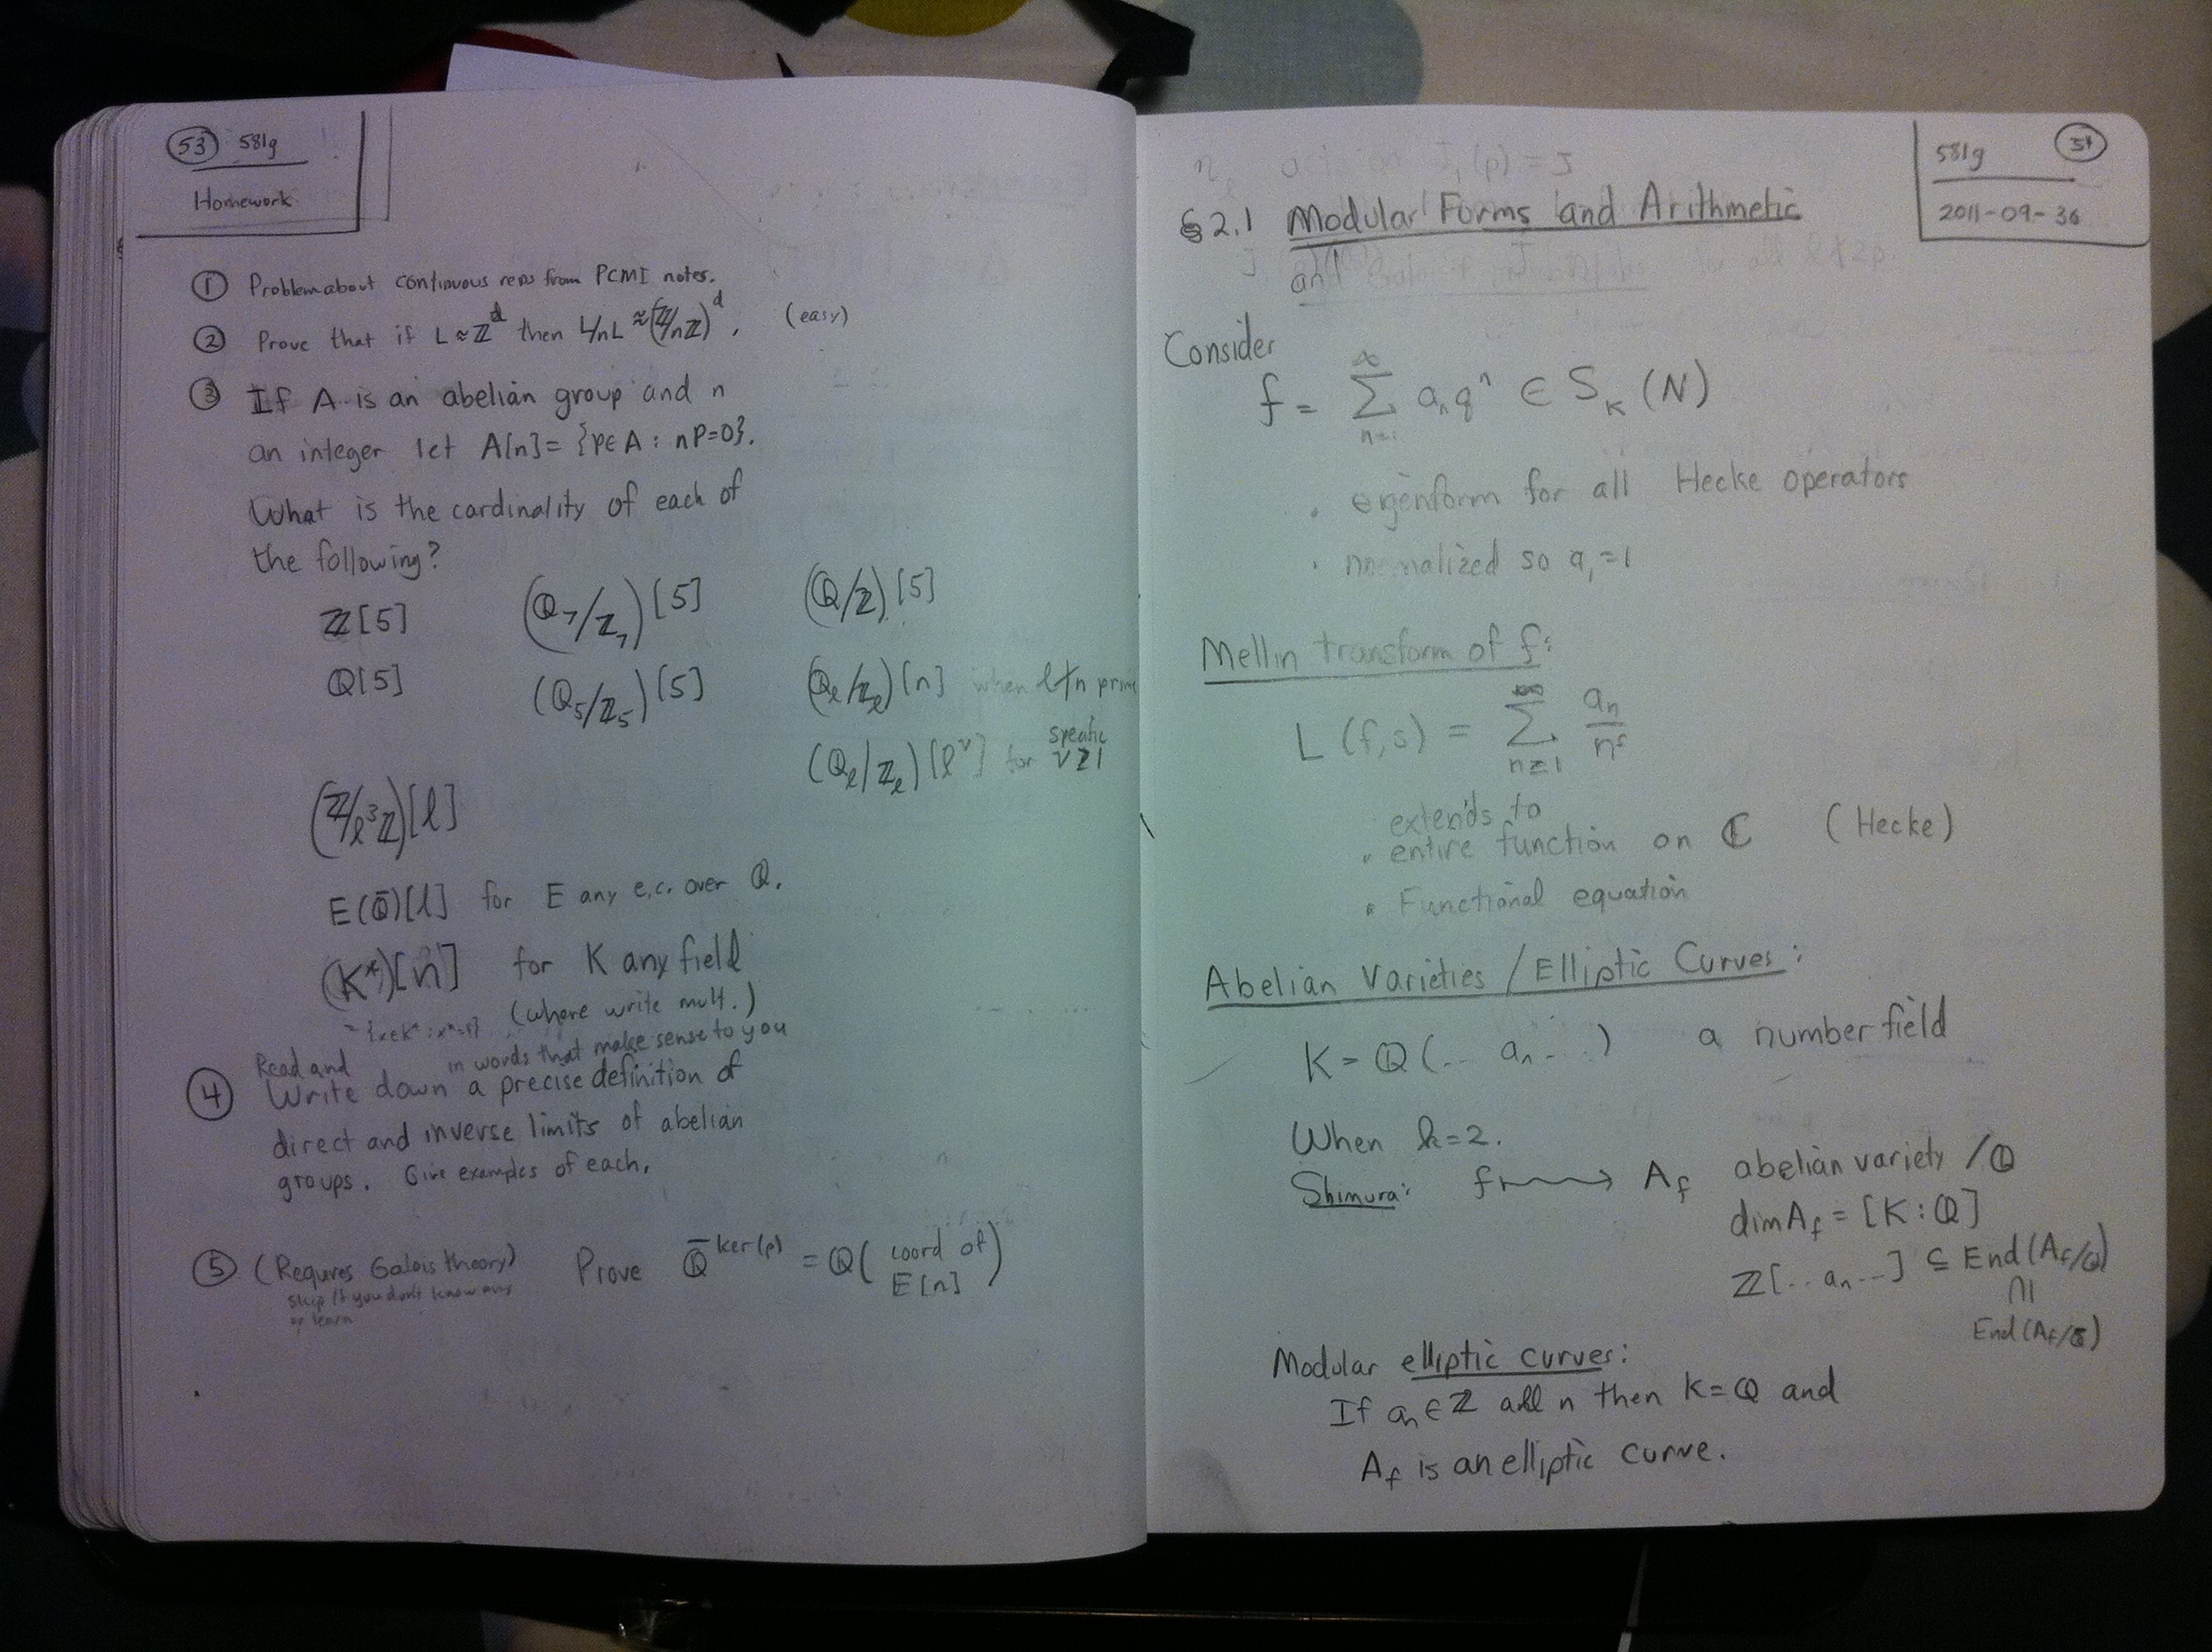 53 581g
Homework
① Problem about continuous reps from PCMI notes.
② Prove that if L ≈ ℤ^d then L/nL ≈ (ℤ/nℤ)^d. (easy)
③ If A is an abelian group and n
an integer let A[n] = {P∈A : nP=0}.
What is the cardinality of each of
the following?
ℤ[5] (ℚ_7/ℤ_7)[5] (ℚ/ℤ)[5]
ℚ[5] (ℚ_5/ℤ_5)[5] (ℚ_ℓ/ℤ_ℓ)[n] when ℓ∤n
(ℚ_ℓ/ℤ_ℓ)[ℓ^ν] for specific ν≥1
(ℤ/ℓ^3ℤ)[ℓ]
E(ℚ̄)[ℓ] for E any e.c. over ℚ.
(K*)[n] for K any field
= {x∈K* : x^n=1} (where write mult.)
Read and in words that make sense to you
④ Write down a precise definition of
direct and inverse limits of abelian
groups. Give examples of each.
⑤ (Requires Galois theory) Prove ℚ̄^ker(ρ) = ℚ(coord of E[n])
skip if you don't know any
or learn
581g 54
2011-09-30
§2.1 Modular Forms and Arithmetic
and
Consider
f = ∑_{n=1}^∞ a_n q^n ∈ S_k(N)
· eigenform for all Hecke operators
· normalized so a_1=1
Mellin transform of f:
L(f,s) = ∑_{n≥1}^∞ a_n/n^s
extends to
· entire function on ℂ (Hecke)
· Functional equation
Abelian Varieties / Elliptic Curves:
K = ℚ(... a_n ...) a number field
When k=2.
Shimura: f ⟿ A_f abelian variety /ℚ
dim A_f = [K:ℚ]
ℤ[.. a_n ...] ⊆ End(A_f/ℚ)
∩|
End(A_f/ℚ̄)
Modular elliptic curves:
If a_n∈ℤ all n then K=ℚ and
A_f is an elliptic curve.